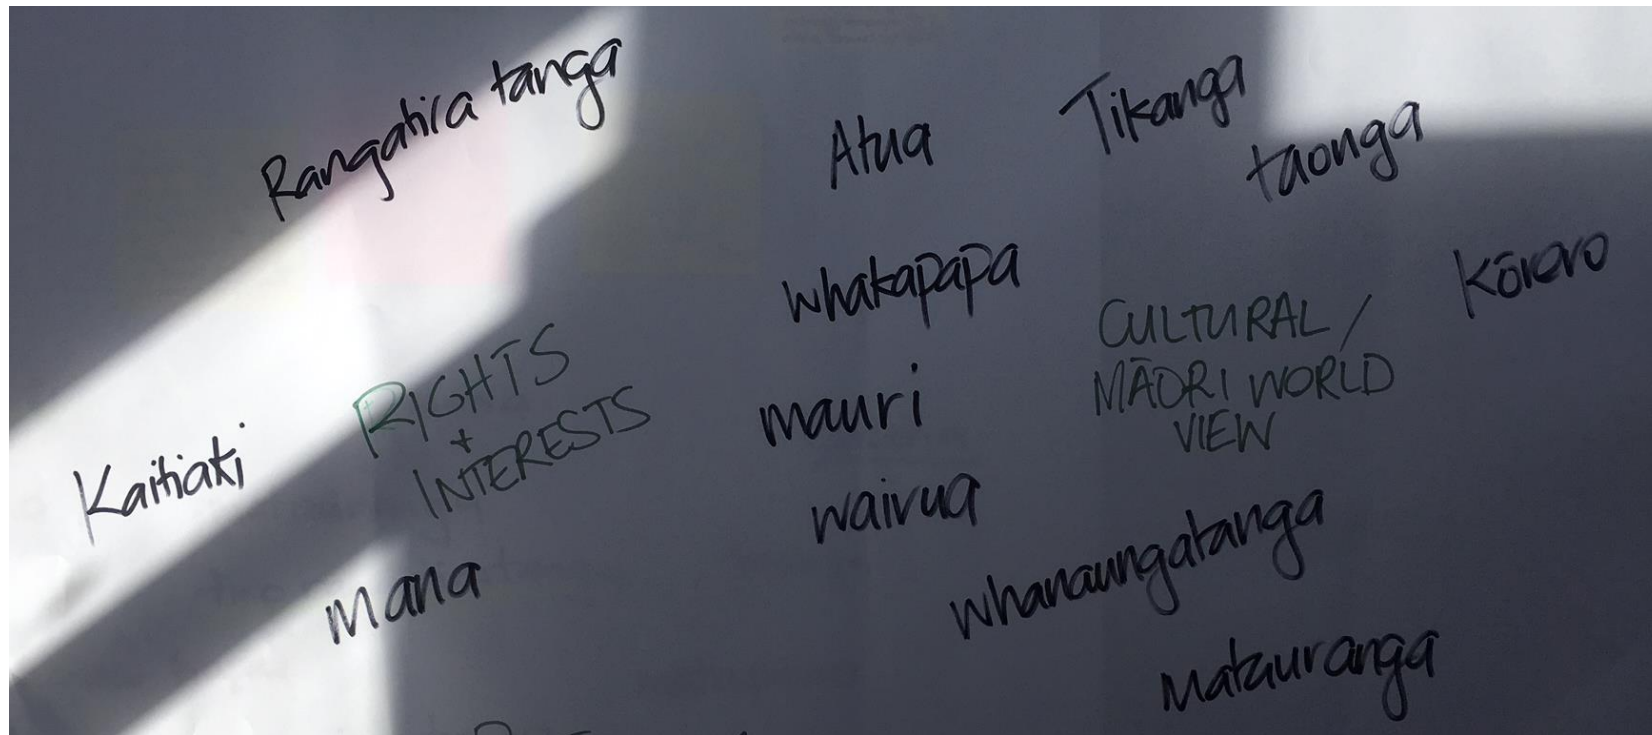 Rangatira tanga
Atua
Tikanga
taonga
whakapapa
Kōrero
CULTURAL /
MĀORI WORLD
VIEW
RIGHTS
+
INTERESTS
mauri
Kaitiaki
wairua
mana
whanaungatanga
Matauranga